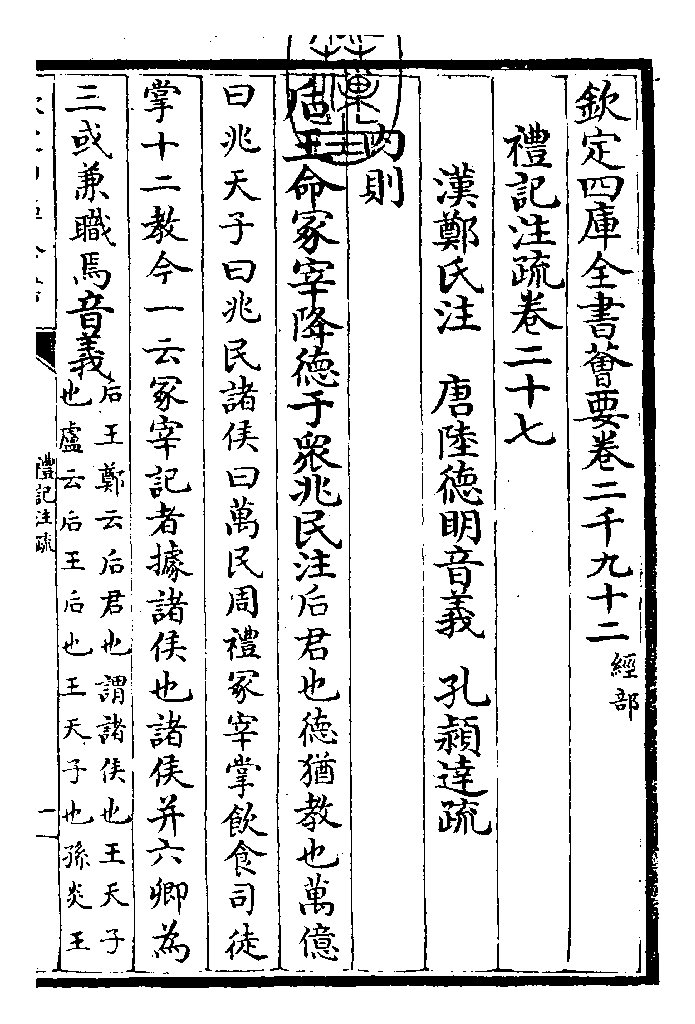 欽定四庫全書薈要卷二千九十二 經部
禮記注疏卷二十七
漢鄭氏注 唐陸德明音義 孔潁達疏
內則
后王命冢宰降德于衆兆民注后君也德猶教也萬億
曰兆天子曰兆民諸侯曰萬民周禮冢宰掌飲食司徒
掌十二教今一云冢宰記者據諸侯也諸侯并六卿為
三或兼職焉音義后王鄭云后君也謂諸侯也王天子
也盧云后王后也王天子也孫炎王
禮記注疏
一